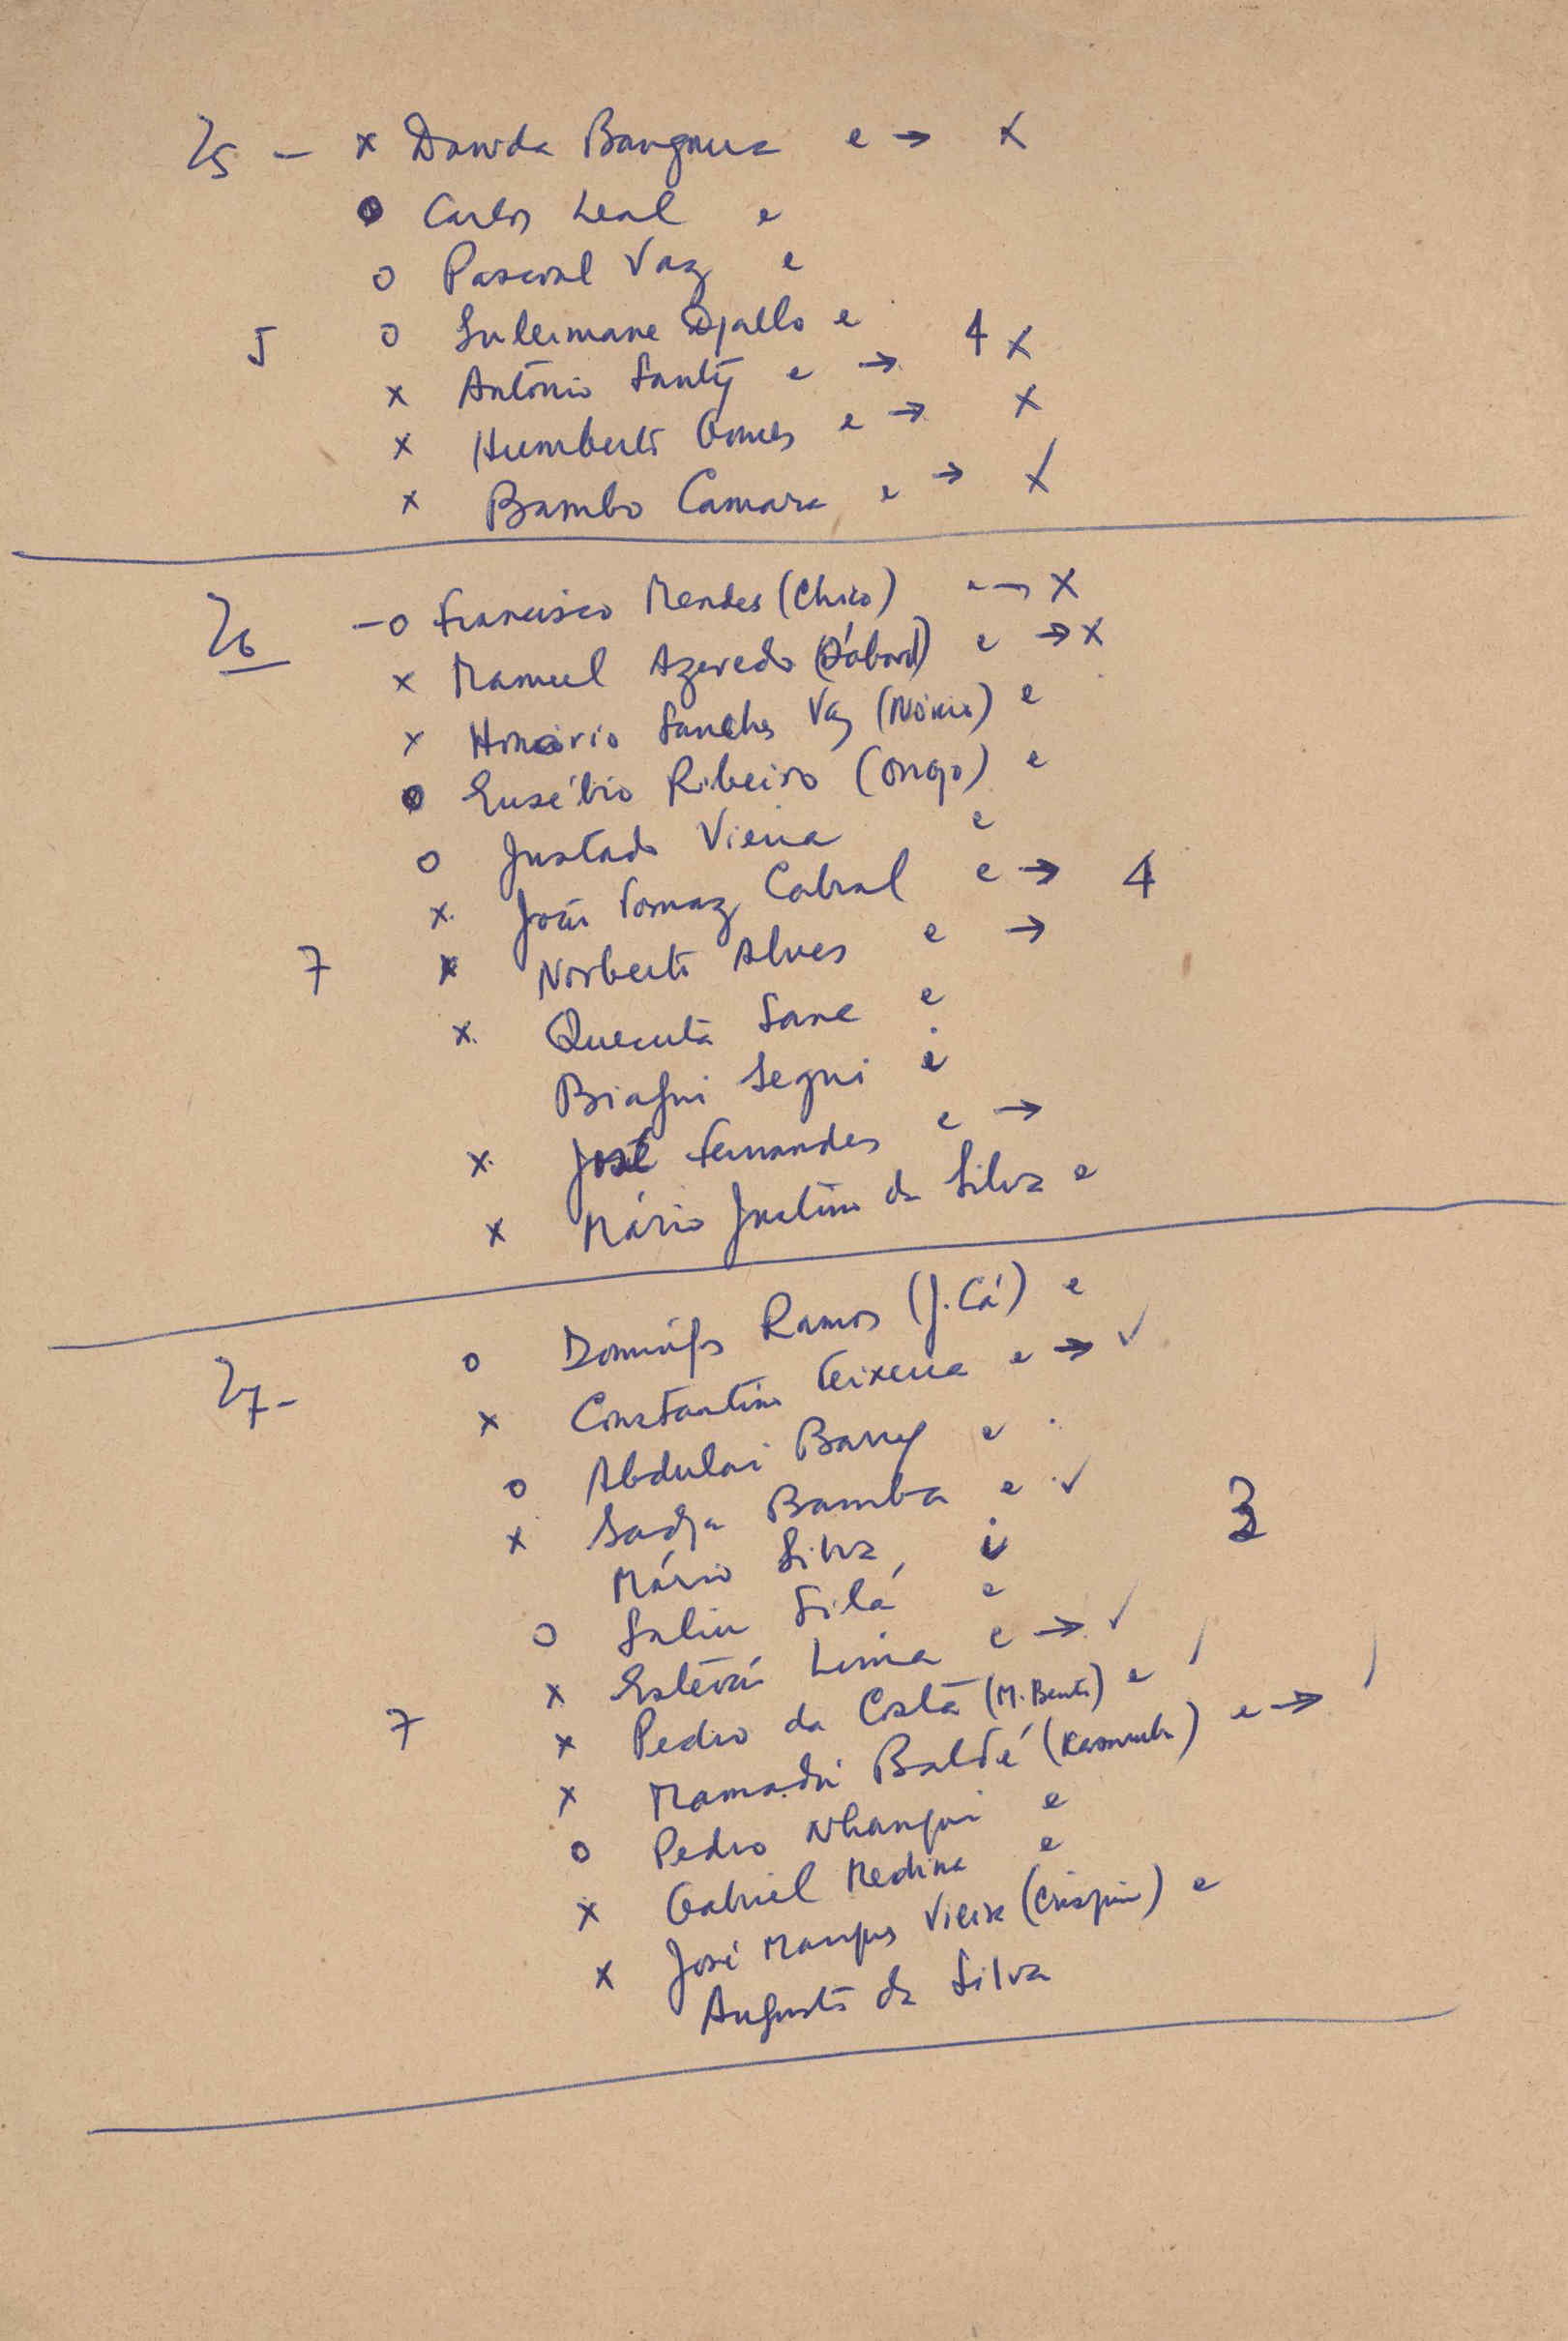 Z5 - x Dawda Bangoura e → x
o Carlos Leal e
o Pascoal Vaz e
5 o Suleimane Djallo e 4
x António Santy e → x
x Humberto Gomes e → x
x Bambo Camara e → x
Z6 - o Francisco Mendes (Chico) e → x
x Manuel Azevedo e → x
x Honório Sanches Vaz e
o Eusébio Ribeiro (Ongo) e
o Justado Vieira e
x João Tomaz Cabral e → 4
7 x Norberto Alves e →
x Quecuta Sane e
Biagui Segui e
x José Fernandes e →
x Mário Justino da Silva e
Z7 - o Domingos Ramos (J. Cá) e
x Constantino Teixeira e → ✓
o Abdulai Barry e
x Sadja Bamba e ✓
Mário Silva i 3
o Saliu Silá e
x Estêvão Lima e → ✓
7 x Pedro da Costa (M. Bento) e /
x Mamadú Baldé e → /
o Pedro Nhangui e
x Gabriel Medina e
x José Marques Vieira (Crispim) e
Augusto da Silva